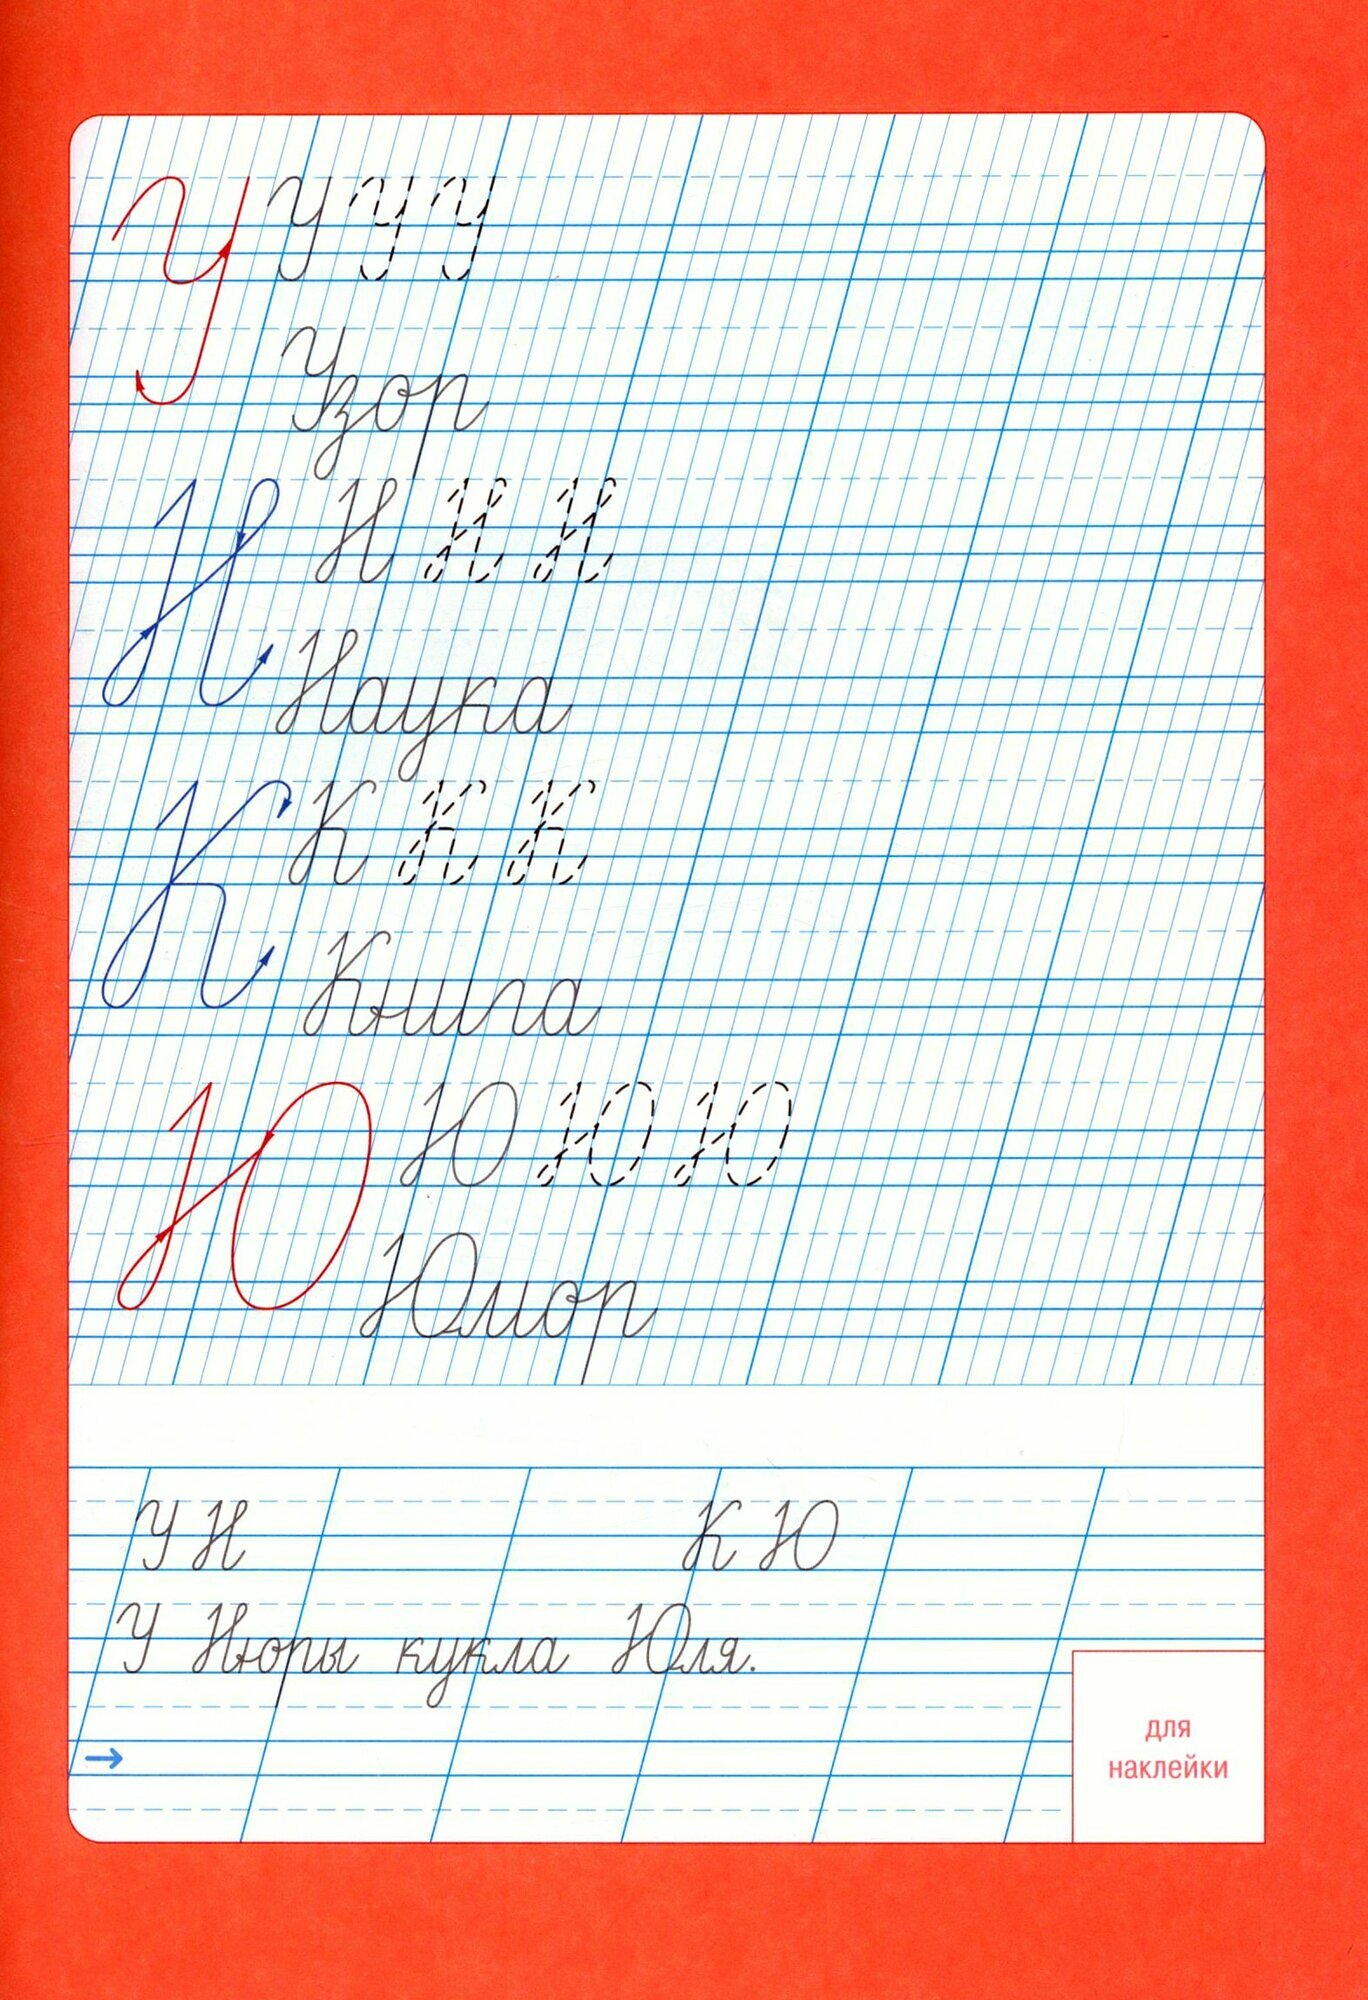 У У У У
Узор
Н Н Н Н
Наука
К К К К
Книга
Ю Ю Ю Ю
Юмор
У Н К Ю
У Нюры кукла Юля.
для
наклейки